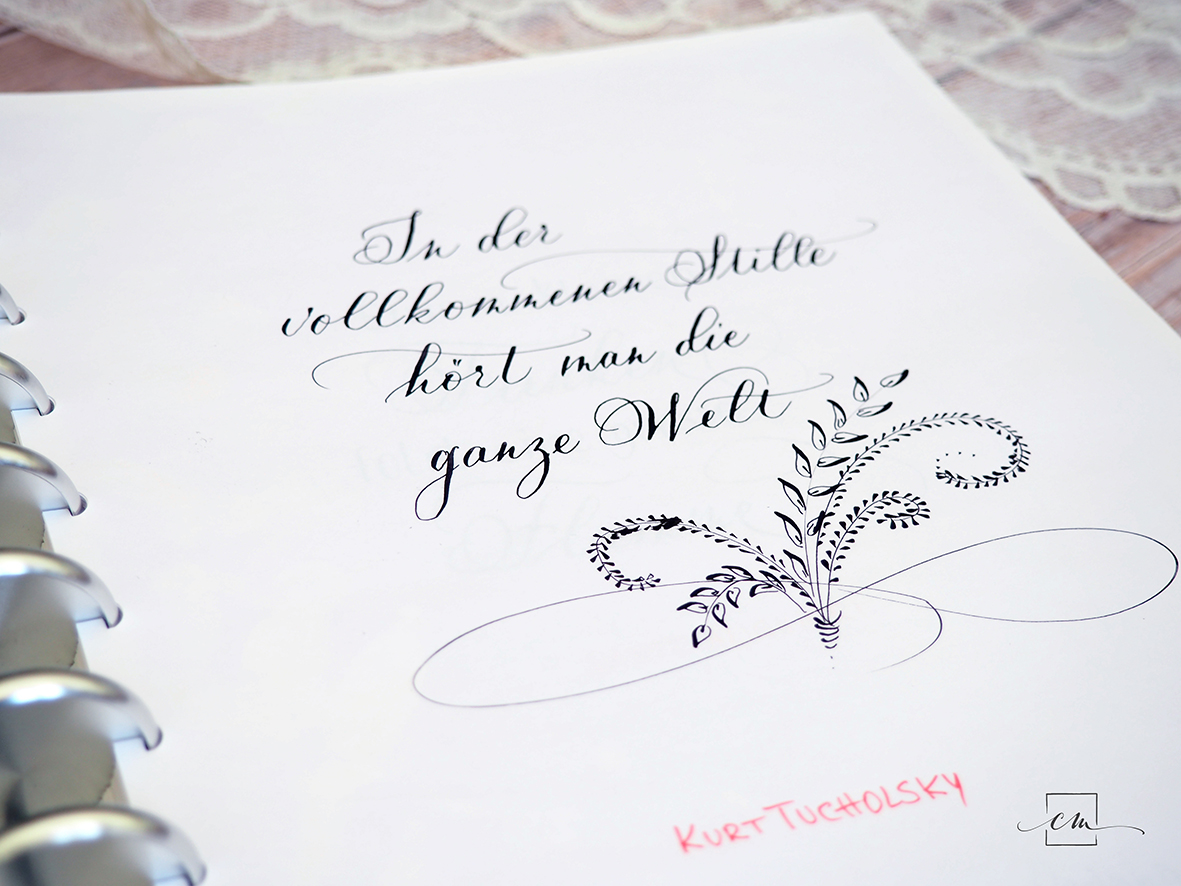 In der
vollkommenen Stille
hört man die
ganze Welt
KURT TUCHOLSKY
cm